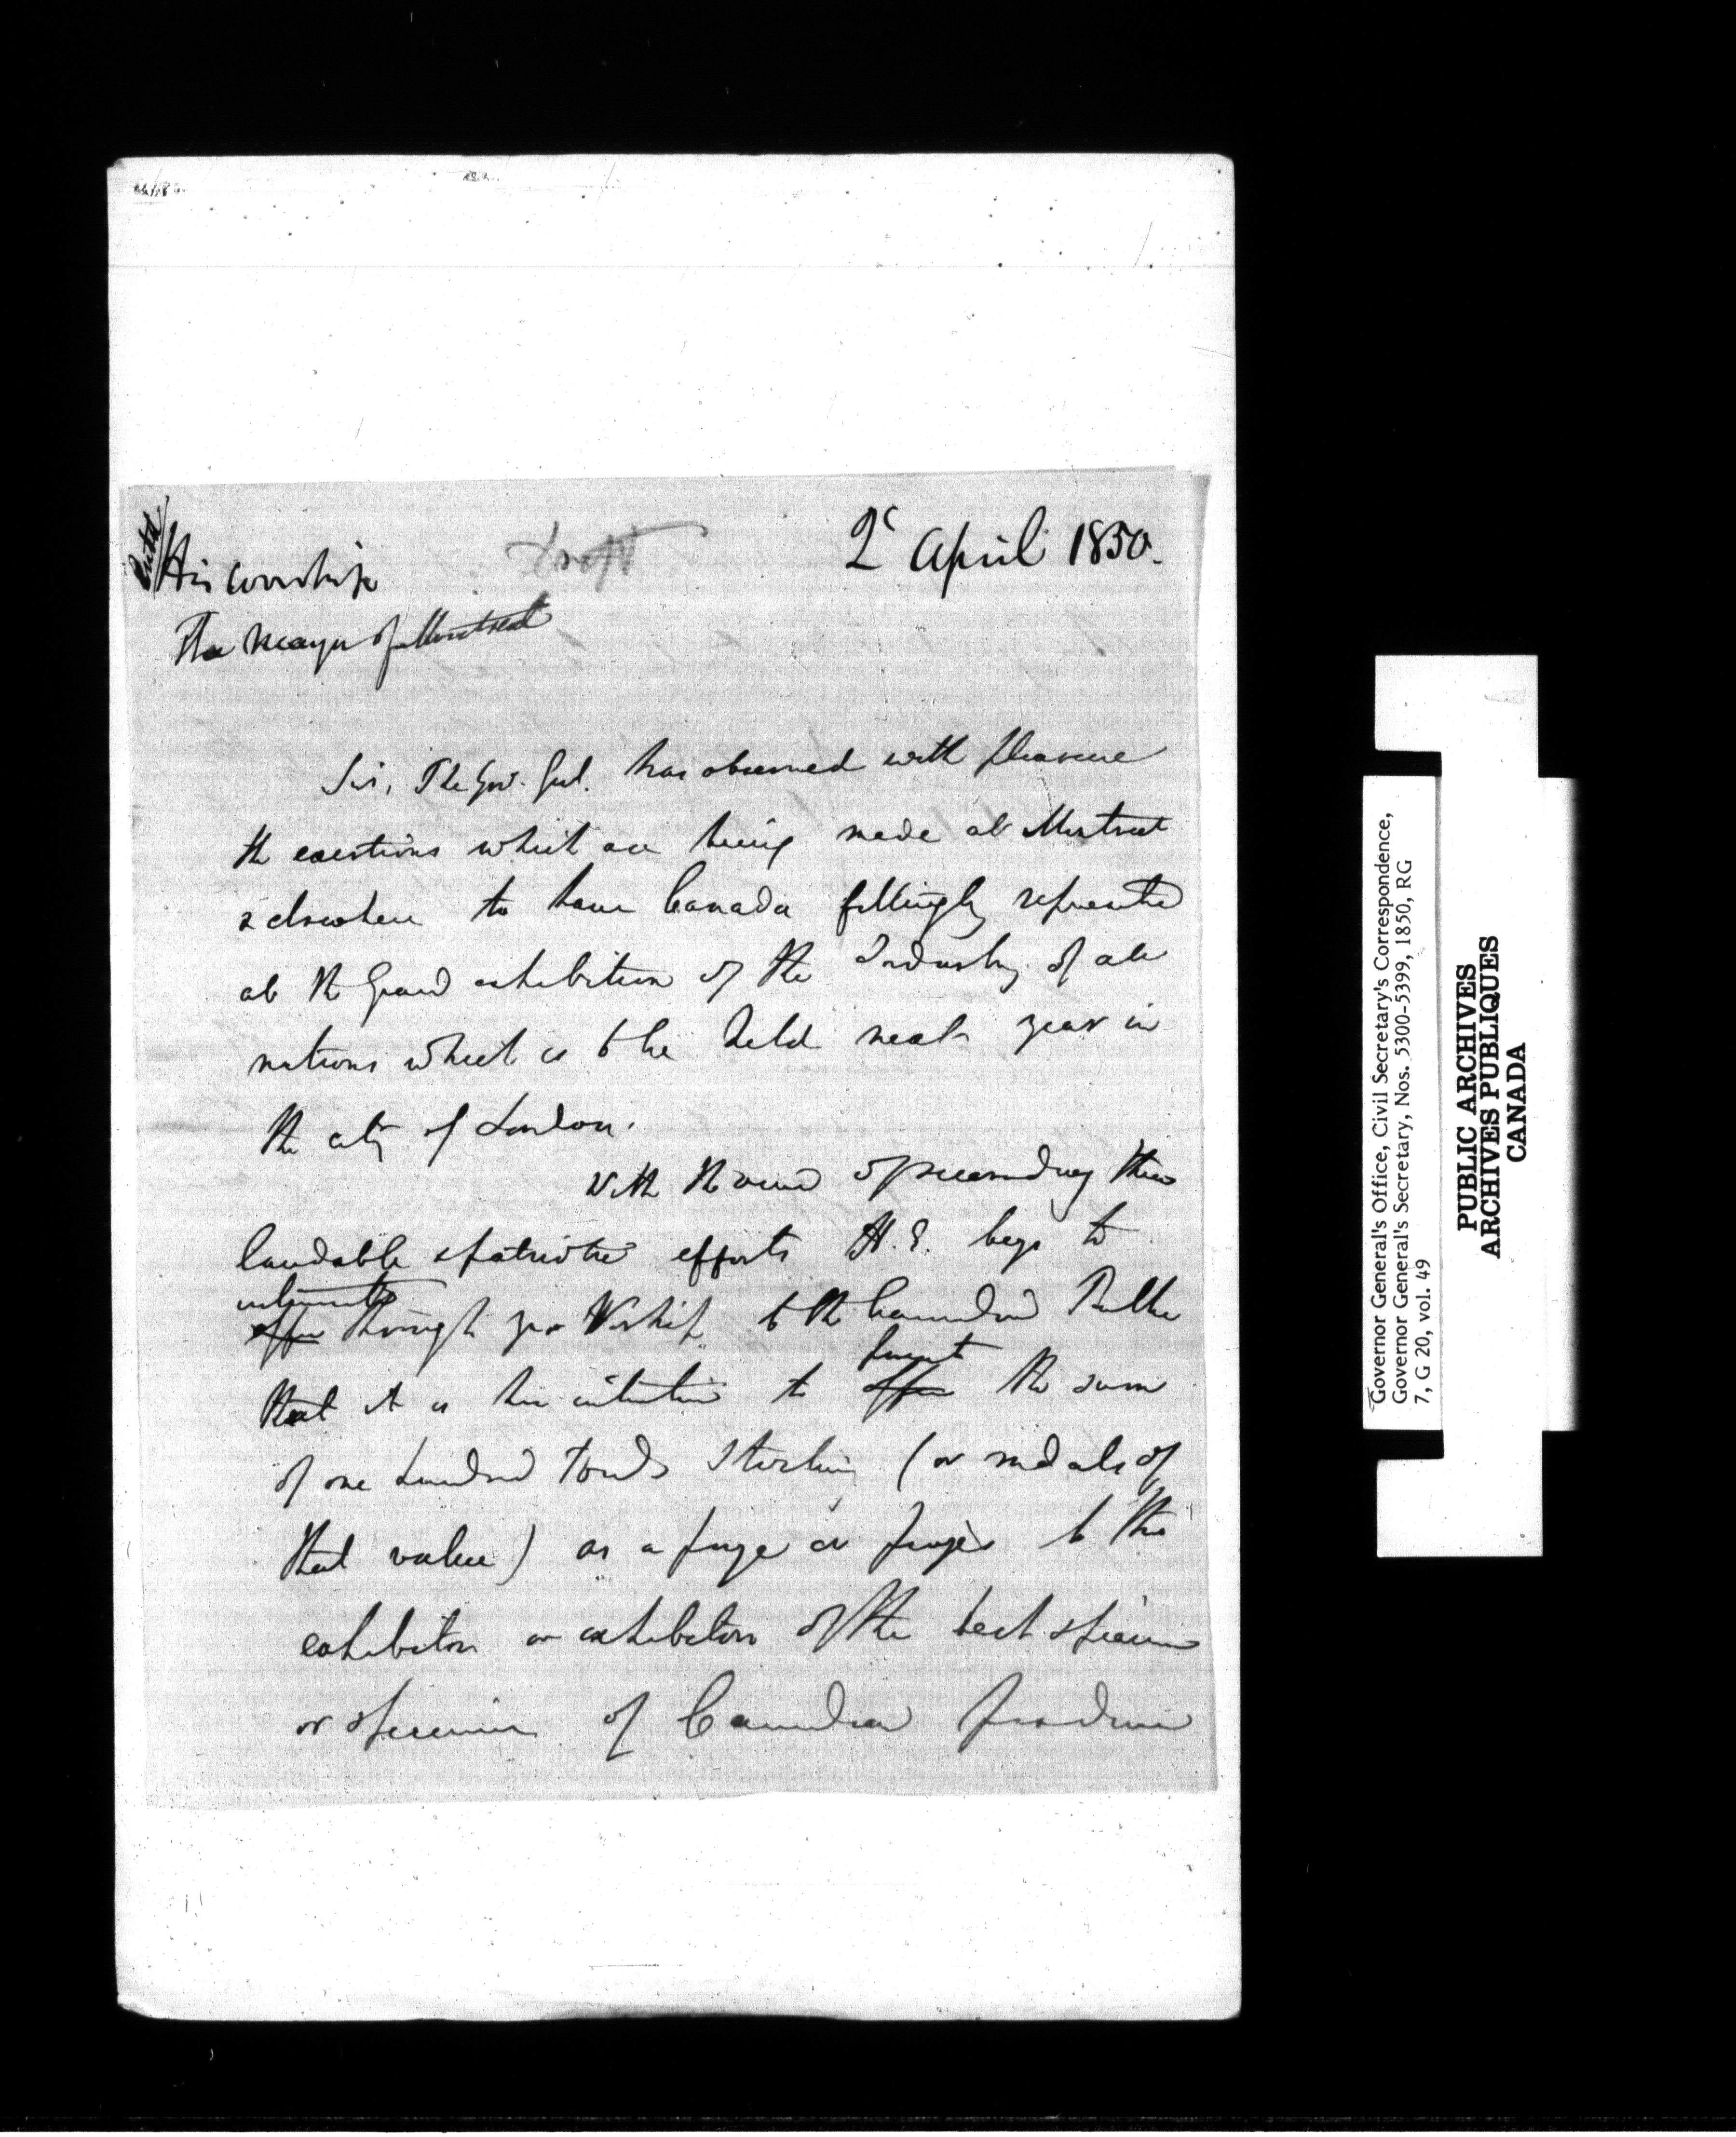 Draft
2d April 1850.
His Worship
The Mayor of Montreal
Sir, The Gov. Genl. has observed with pleasure
the exertions which are being made at Montreal
& elsewhere to have Canada fittingly represented
at the Grand exhibition of the Industry of all
nations which is to be held next year in
the city of London.
With the view of seconding these
laudable & patriotic efforts H.E. begs to
intimate
offer through yr Worship to the Canadian Public
present
that it is his intention to offer the sum
of one hundred Pounds Sterling (or medals of
that value) as a prize or prizes to the
exhibitor or exhibitors of the best specimen
or specimens of Canadian produce
Governor General's Office, Civil Secretary's Correspondence,
Governor General's Secretary, Nos. 5300-5399, 1850, RG
7, G 20, vol. 49
PUBLIC ARCHIVES
ARCHIVES PUBLIQUES
CANADA